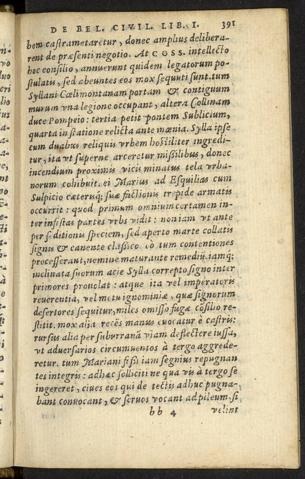 DE BEL. CIVIL. LIB. I. 391
bem castrametaretur, donec amplius delibera-
rent de præsenti negotio. At COSS. intellecto
hoc consilio, annuerunt quidem legatorum po-
stulatis, sed abeuntes eos mox sequuti sunt. tum
Syllani Cælimontanam portam & contiguum
murum vna legione occupant, altera Collinam
duce Pompeio: tertia petit pontem Sublicium,
quarta in statione relicta ante mœnia. Sylla ipse
cum duabus reliquis vrbem hostiliter ingredi-
tur, ita vt superne arceretur missilibus, donec
incendium proximis vicis minatus tela vrba-
norum cohibuit. ei Marius ad Esquilias cum
Sulpicio cæterisq; suæ factionis trepide armatis
occurrit: quod primum omnium certamen in-
ter infistas partes vrbs vidit: non iam vt ante
per seditionis speciem, sed aperto marte collatis
signis & canente classico. eo tum contentiones
processerant, nemine maturante remedium. iamq;
inclinata suorum acie Sylla correpto signo inter
primores prouolat: atque ita vel imperatoris
reuerentia, vel metu ignominiæ, quæ signorum
desertores sequitur, miles omisso fugæ cōsilio re-
stitit. mox alia recēs manus euocatur è castris:
rursus alia per suburranā viam deflectere iussa,
vt aduersarios circumuentos à tergo aggrede-
retur. tum Mariani fessi iam segnius repugnan
tes integris: adhæc solliciti ne qua vis à tergo se
ingereret, ciues eos qui de tectis adhuc pugna-
bant conuocant, & seruos vocant ad pileum, si
bb 4 velint